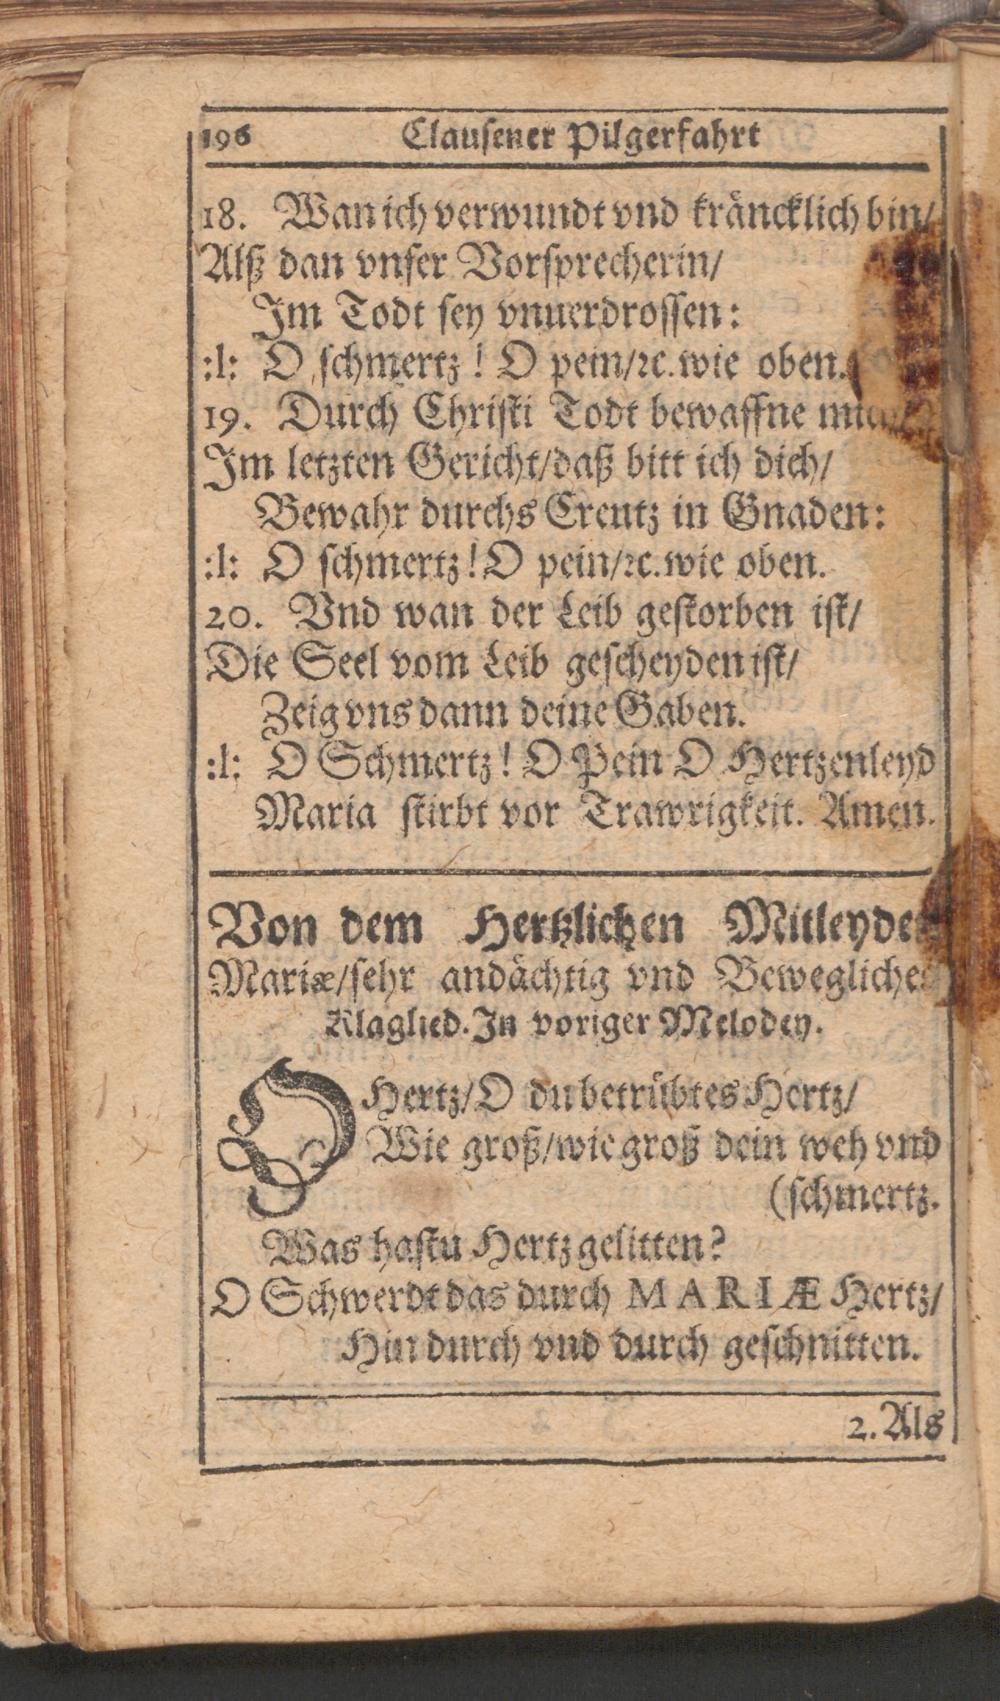 196 Clausener Pilgerfahrt
18. Wan ich verwundt vnd kräncklich bin/
Alß dan vnser Vorsprecherin/
Im Todt sey vnuerdrossen:
:l: O schmertz! O pein/ꝛc. wie oben.
19. Durch Christi Todt bewaffne mich/
Im letzten Gericht/daß bitt ich dich/
Bewahr durchs Creutz in Gnaden:
:l: O schmertz! O pein/ꝛc. wie oben.
20. Vnd wan der Leib gestorben ist/
Die Seel vom Leib gescheyden ist/
Zeig vns dann deine Gaben.
:l: O Schmertz! O Pein O Hertzenleyd
Maria stirbt vor Trawrigkeit. Amen.
Von dem Hertzlichen Mitleyden
Mariæ/sehr andächtig vnd Bewegliches
Klaglied. In voriger Melodey.
O Hertz/O du betrübtes Hertz/
Wie groß/wie groß dein weh vnd
(schmertz.
Was hastu Hertz gelitten?
O Schwerdt das durch MARIÆ Hertz/
Hin durch vnd durch geschnitten.
2. Als